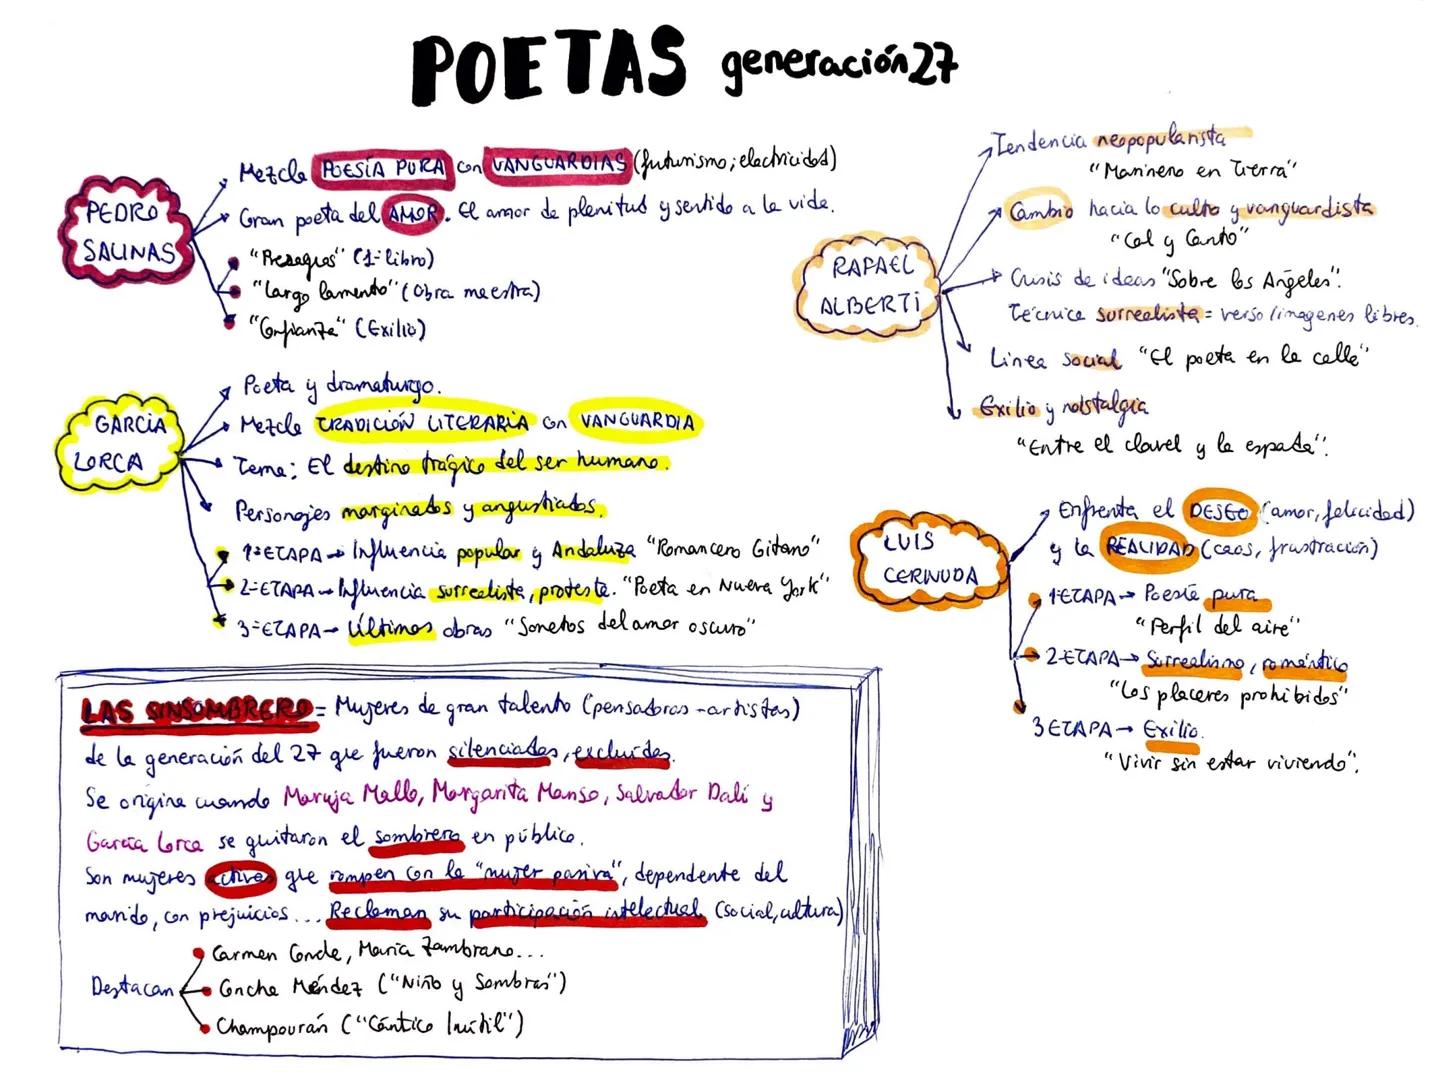 POETAS generación 27
PEDRO
SALINAS
Mezcla POESÍA PURA con VANGUARDIAS (futurismo; electricidad)
Gran poeta del AMOR. El amor de plenitud y sentido a la vida.
"Presagios" (1º libro)
"Largo lamento" (Obra maestra)
"Confianza" (Exilio)
GARCÍA
LORCA
Poeta y dramaturgo.
Mezcla TRADICIÓN LITERARIA con VANGUARDIA
Tema: El destino trágico del ser humano.
Personajes marginados y angustiados.
1ª ETAPA → Influencia popular y Andaluza "Romancero Gitano"
2ª ETAPA → Influencia surrealista, protesta. "Poeta en Nueva York"
3ª ETAPA → Últimas obras "Sonetos del amor oscuro"
LAS SINSOMBRERO = Mujeres de gran talento (pensadoras - artistas)
de la generación del 27 que fueron silenciadas, excluidas.
Se origina cuando Maruja Mallo, Margarita Manso, Salvador Dalí y
García Lorca se quitaron el sombrero en público.
Son mujeres activas que rompen con la "mujer pasiva", dependente del
marido, con prejuicios... Reclaman su participación intelectual (social, cultura)
Destacan
Carmen Conde, María Zambrano...
Concha Méndez ("Niño y Sombras")
Champourán ("Cántico Inútil")
RAFAEL
ALBERTI
Tendencia neopopularista
"Marinero en Tierra"
Cambio hacia lo culto y vanguardista
"Cal y Canto"
Crisis de ideas "Sobre los Ángeles".
Técnica surrealista = verso/imagenes libres.
Linea social "El poeta en la calle"
Exilio y nolstalgia
"Entre el clavel y la espada".
LUIS
CERNUDA
Enfrenta el DESEO (amor, felicidad)
y la REALIDAD (caos, frustración)
1ª ETAPA → Poesía pura
"Perfil del aire"
2ª ETAPA → Surrealismo, romántico
"Los placeres prohibidos"
3 ETAPA → Exilio.
"Vivir sin estar viviendo".